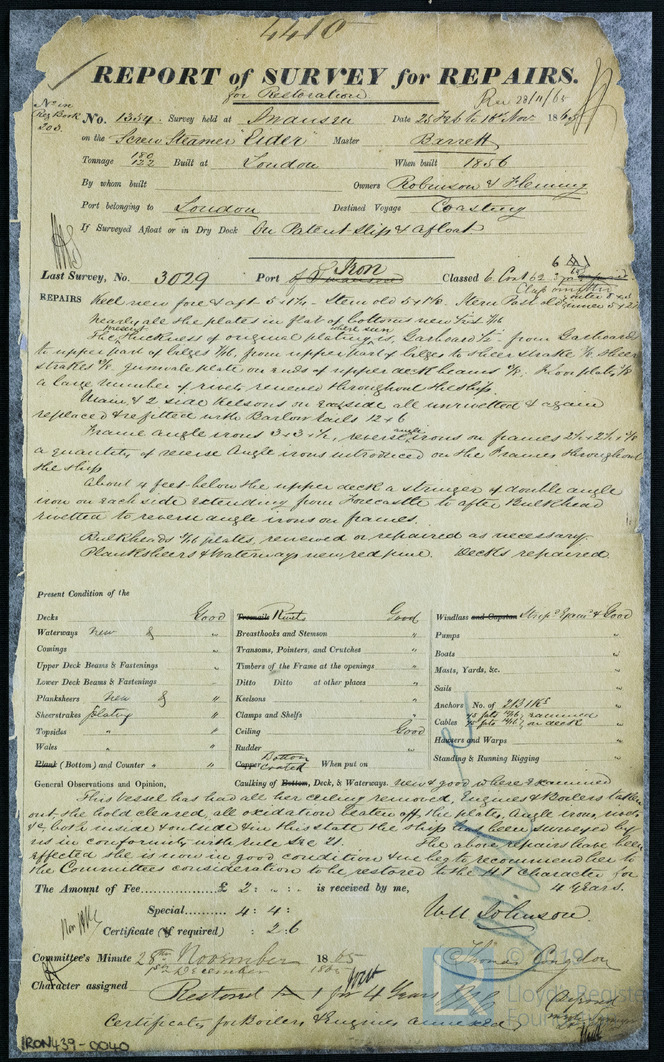 4410
REPORT of SURVEY for REPAIRS.
for Restoration
Rec 28/11/65
No. in Reg Book 203.
No. 1354. Survey held at Swansea Date 25 Feb to 18th Nov. 1865
on the Screw Steamer "Eider" Master Barrett
Tonnage 180 127 Built at London When built 1856
By whom built Owners Robinson & Fleming
Port belonging to London Destined Voyage Coasting
If Surveyed Afloat or in Dry Dock On Patent Slip & afloat
Iron
Last Survey, No. 3029 Port of Swansea Classed 6. Cont 62. 3
REPAIRS Keel new fore & aft Stem old Stern Post old
nearly all the plates in flat of bottom new
The present thickness of original plating where seen is, Garboard from Garboard
to upper part of bilges from upper part of bilges to sheer strake sheer
strakes gunwale plate on ends of upper deck beams Floor plates
a large number of rivets renewed throughout the ship.
Main & 2 side Kelsons on each side all unrivetted & again
replaced & refitted with Barlow rails 12 x 6
Frame angle irons reverse angle irons on frames
a quantity of reverse Angle irons introduced on the Frames throughout
the ship.
About 4 feet below the upper deck a stringer of double angle
iron on each side extending from Forecastle to after Bulkhead
rivetted to reverse angle irons on frames.
Bulkheads plates, renewed or repaired as necessary.
Planksheers & Waterways new red pine. Decks repaired
Present Condition of the
Decks Good
Waterways New & "
Comings "
Upper Deck Beams & Fastenings "
Lower Deck Beams & Fastenings
Planksheers New & "
Sheerstrakes plating "
Topsides " "
Wales " "
Plank (Bottom) and Counter " "
Treenails Rivets Good
Breasthooks and Stemson "
Transoms, Pointers, and Crutches "
Timbers of the Frame at the openings "
Ditto Ditto at other places "
Keelsons "
Clamps and Shelfs "
Ceiling Good
Rudder "
Copper Bottom Coated When put on
Caulking of Bottom, Deck, & Waterways. new & good where examined
Windlass and Capstan Good
Pumps "
Boats "
Masts, Yards, &c. "
Sails "
Anchors No. of "
Cables "
Hawsers and Warps "
Standing & Running Rigging "
General Observations and Opinion,
This vessel has had all her ceiling removed, Engines & Boilers taken
out, the hold cleared, all oxidation beaten off, the plates, Angle irons,
&c both inside & outside & in this state the ship has been surveyed by
us in conformity with rule Sec 21. The above repairs have been
effected she is now in good condition & we beg to recommend her to
the Committees consideration to be restored to the A1 character for
4 Years.
The Amount of Fee............ £ 2 : " : " is received by me,
Special........ 4 : 4 :
Certificate (if required) : 2.6
Wm Johnson.
Thomas Congdon
Committee's Minute 28th November 1865
1st December 1865
Character assigned Restored A 1 for 4 Years
Certificates for Boilers & Engines annexed
IRON439-0040
© 2019
Lloyd's Register
Foundation